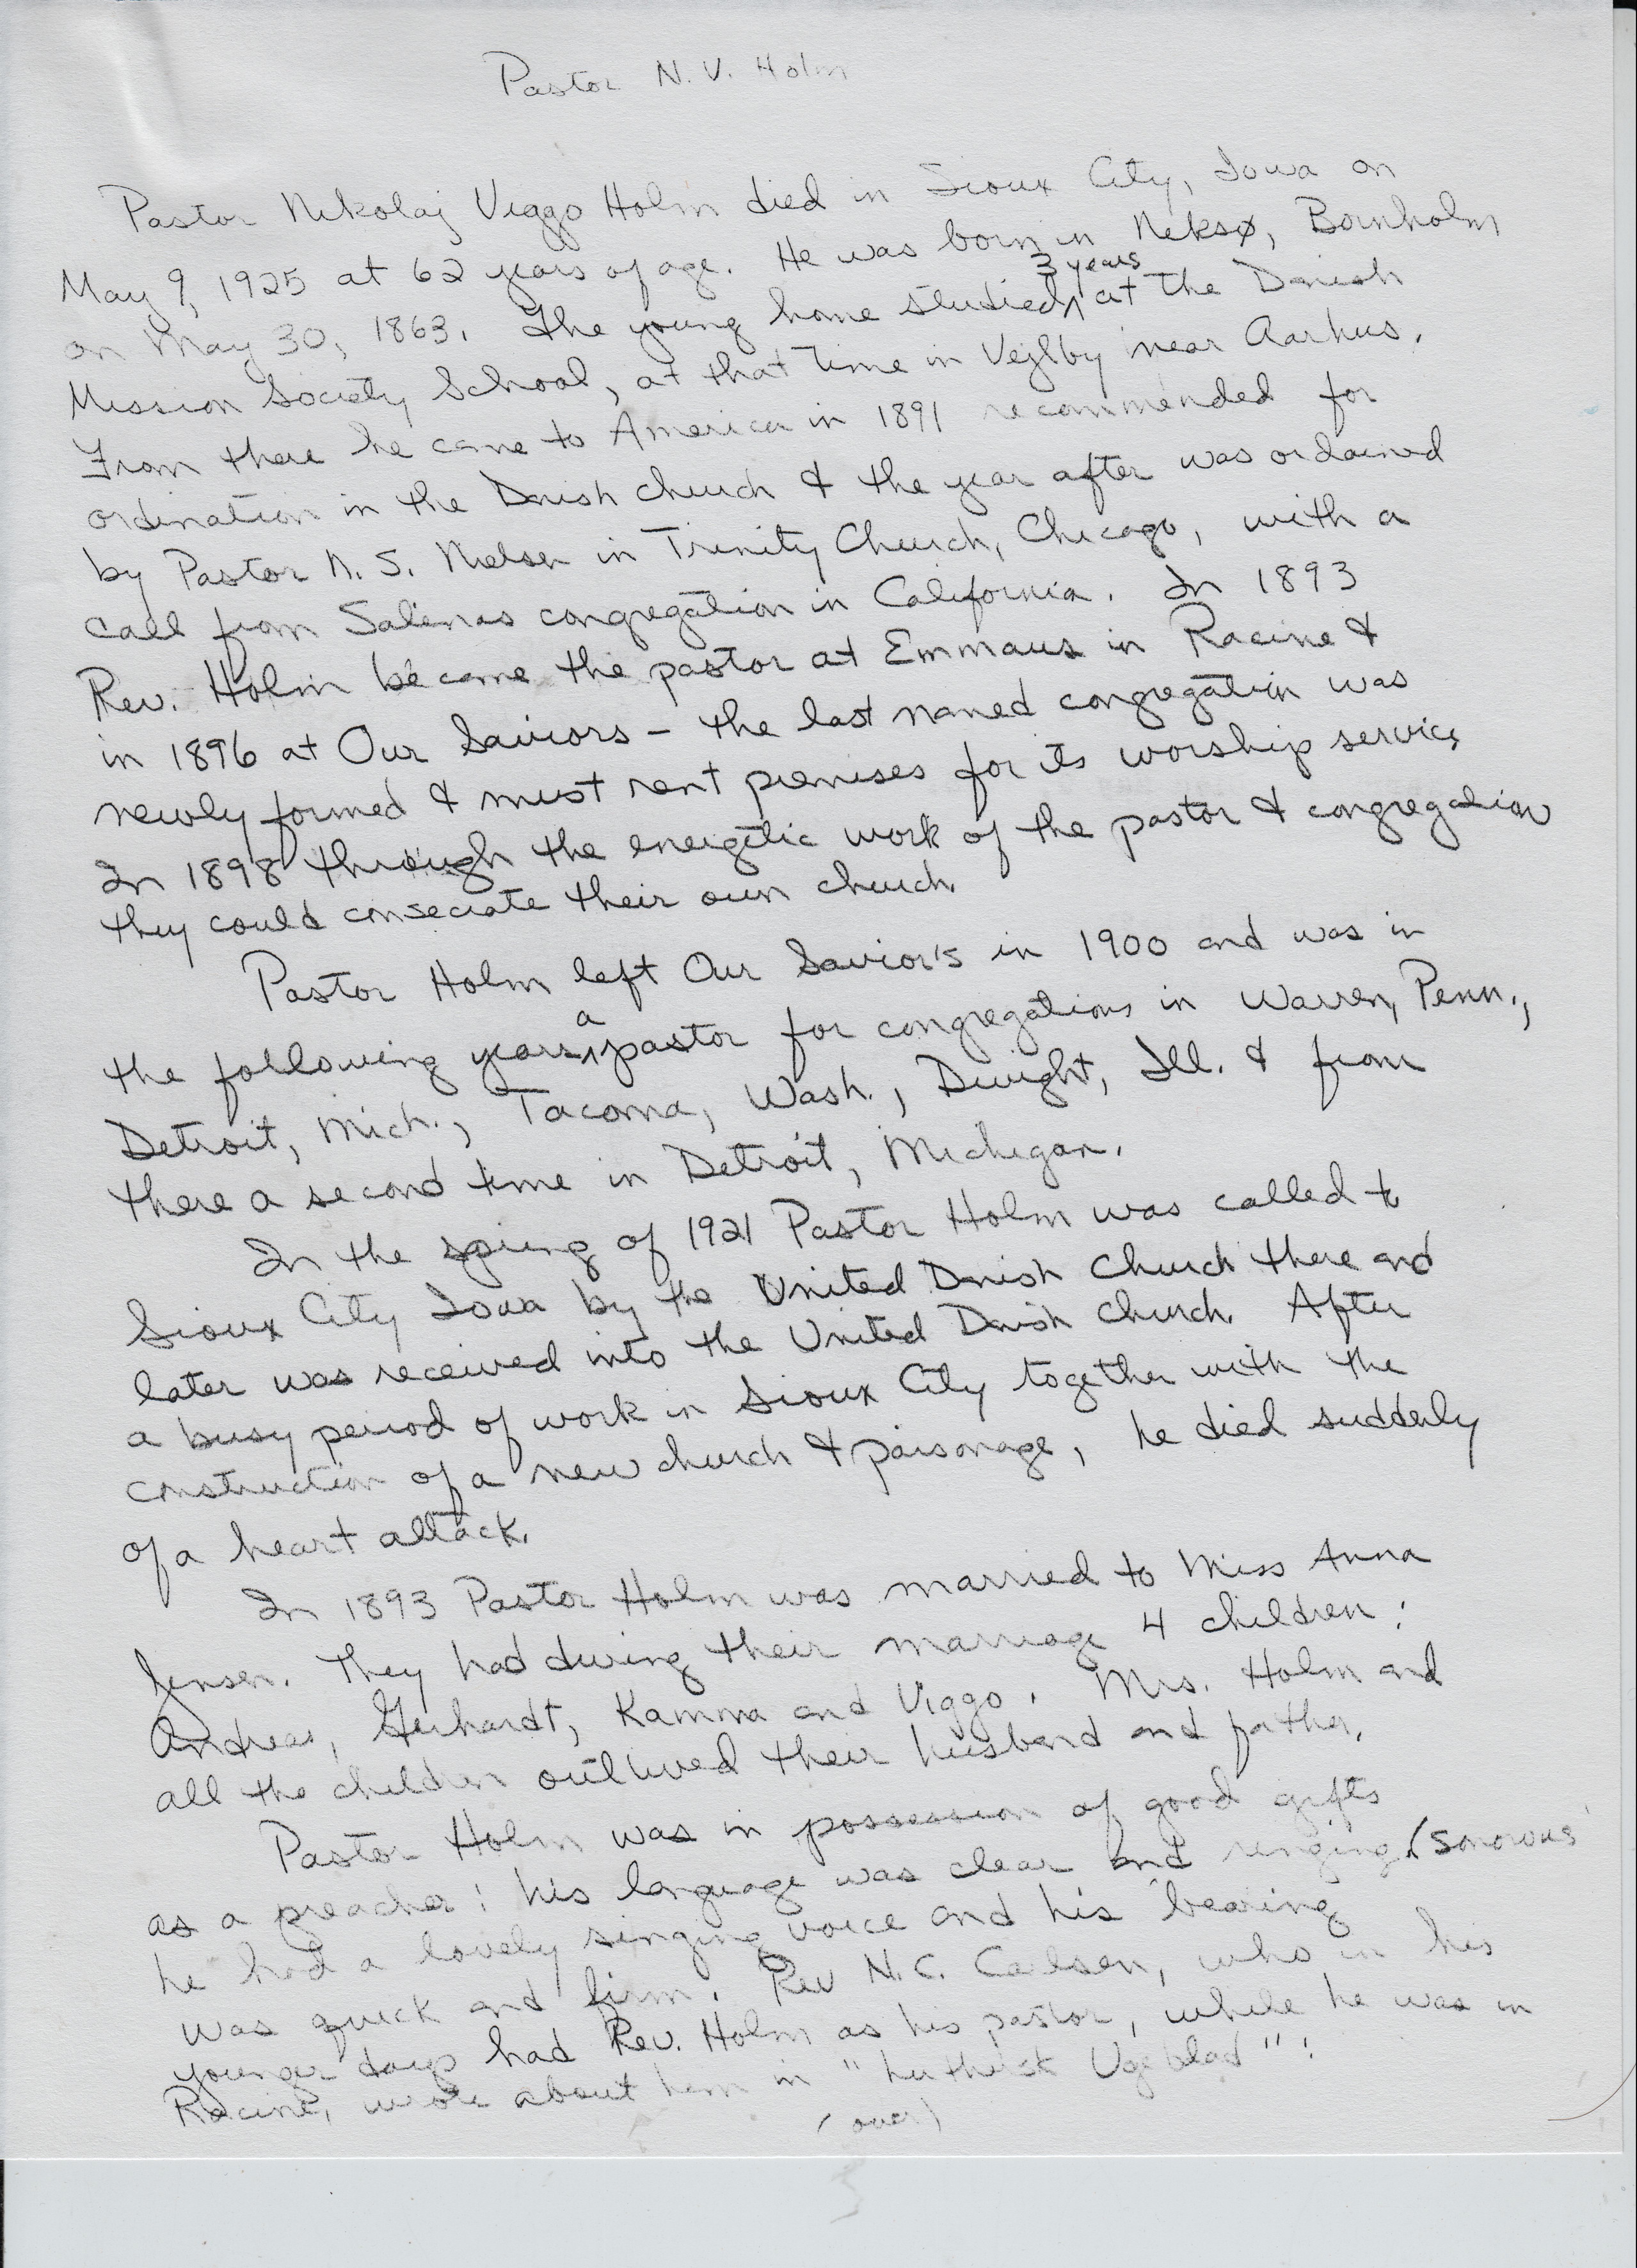 Pastor N. V. Holm
Pastor Nikolaj Viggo Holm died in Sioux City, Iowa on
May 9, 1925 at 62 years of age. He was born in Neksø, Bornholm
on May 30, 1863. The young home studied 3 years at the Danish
Mission Society School, at that time in Vejlby near Aarhus.
From there he came to America in 1891 recommended for
ordination in the Danish church & the year after was ordained
by Pastor A. S. Nielsen in Trinity Church, Chicago, with a
call from Salinas congregation in California. In 1893
Rev. Holm became the pastor at Emmaus in Racine &
in 1896 at Our Saviors - the last named congregation was
newly formed & must rent premises for its worship services
In 1898 through the energetic work of the pastor & congregation
they could consecrate their own church.
Pastor Holm left Our Savior's in 1900 and was in
the following years a pastor for congregations in Warren, Penn.,
Detroit, Mich., Tacoma, Wash., Dwight, Ill. & from
there a second time in Detroit, Michigan.
In the spring of 1921 Pastor Holm was called to
Sioux City Iowa by the United Danish Church there and
later was received into the United Danish Church. After
a busy period of work in Sioux City together with the
construction of a new church & parsonage, he died suddenly
of a heart attack.
In 1893 Pastor Holm was married to Miss Anna
Jensen. They had during their marriage 4 children:
Andreas, Gerhardt, Kamma and Viggo. Mrs. Holm and
all the children outlived their husband and father.
Pastor Holm was in possession of good gifts
as a preacher: his language was clear and ringing (sonorous
he had a lovely singing voice and his bearing
was quick and firm. Rev N.C. Carlsen, who in his
younger days had Rev. Holm as his pastor, while he was in
Racine, wrote about him in "Luthersk Ugeblad":
(over)